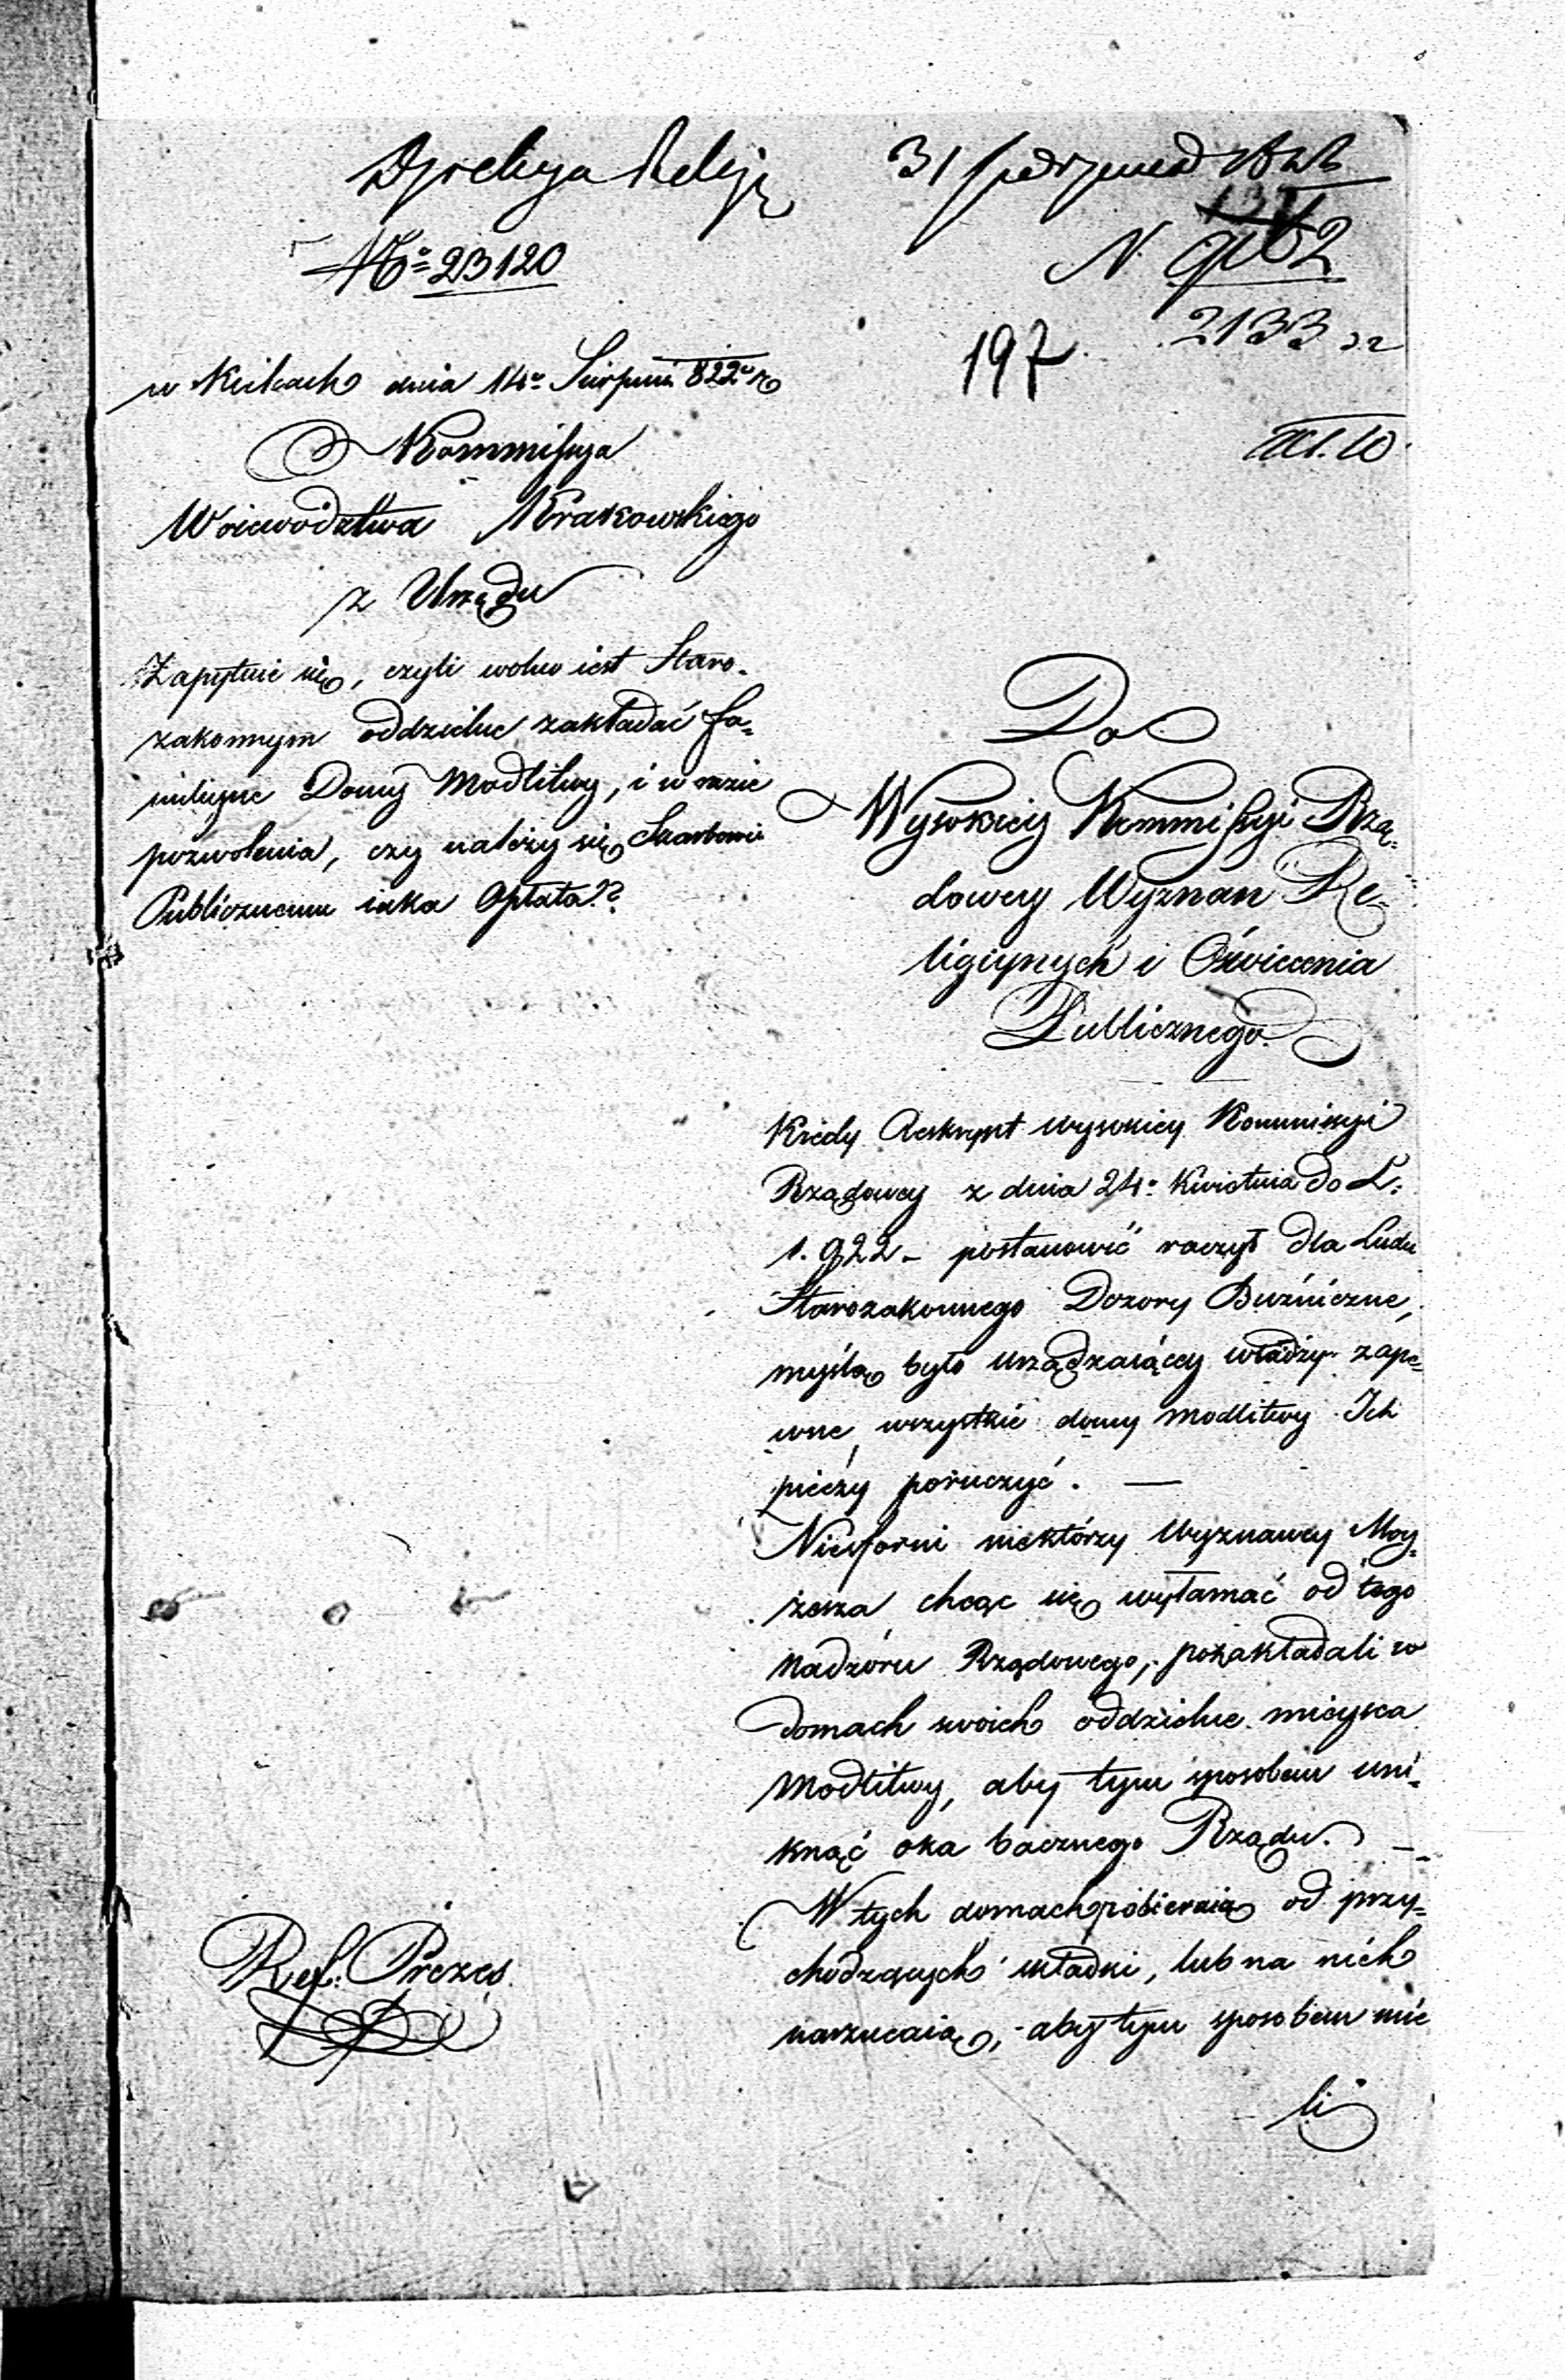 Dyrekcya Religij
31 sierpnia 1822
N. 9152
2133
N° 23120
197
w Kielcach dnia 14° Sierpnia 822° r
Kommissya
Woiewodztwa Krakowskiego
z Urzędu
Zapytuie się, czyli wolno iest Staro-
zakonnym oddzielne zakładać fa-
miliyne Domy Modlitwy, i w razie
pozwolenia, czy należy się Skarbowi
Publicznemu iaka Opłata??
Ref: Prezes
Do
Wysokiey Kommissyi Rzą-
dowey Wyznań Re-
ligiynych i Oświecenia
Publicznego.
Kiedy Reskrypt wysokiey Kommissyi
Rządowey z dnia 24° Kwietnia do L:
1.922 - postanowić raczył dla Ludu
Starozakonnego Dozory Bużniczne,
myślą było urządzaiącey władzy zape-
wne wszystkie domy modlitwy Ich
pieczy poruczyć. —
Niesforni niektórzy wyznawcy Moy-
żesza chcąc się wyłamać od tego
nadzóru Rządowego, pozakładali w
domach swoich oddzielne mieysca
Modlitwy, aby tym sposobem uni-
knąć oka bacznego Rządu. —
W tych domach pobieraią od przy-
chodzących składki, lub na nich
narzucaią, - aby tym sposobem mie
li